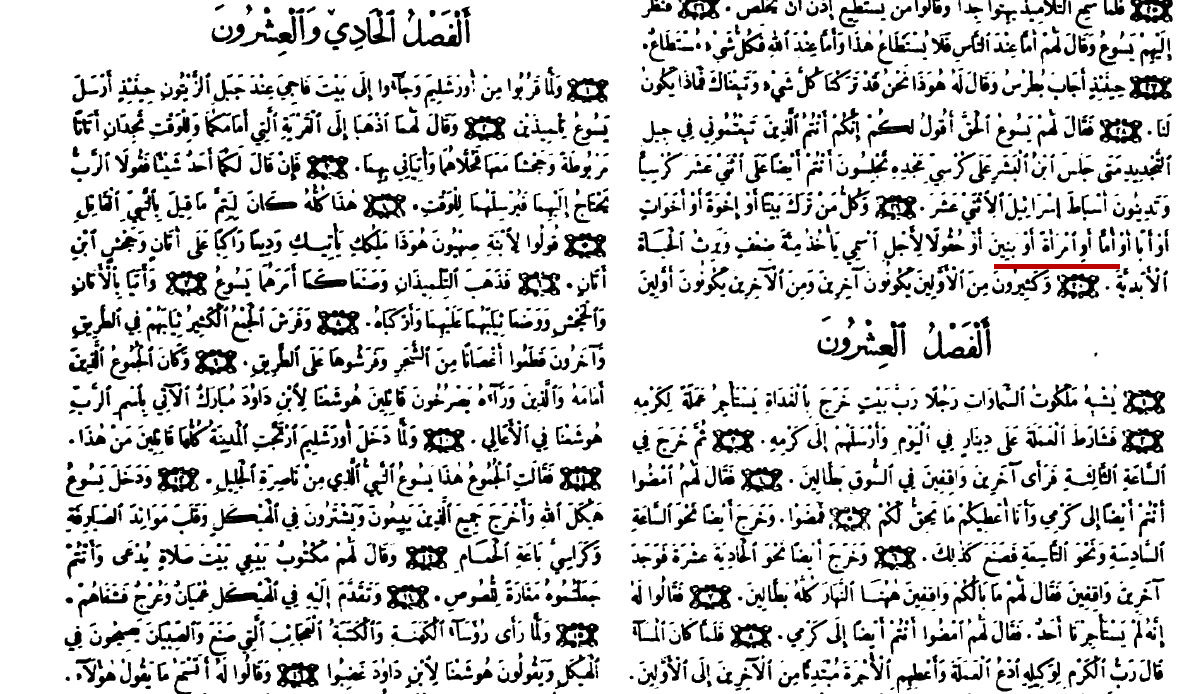 فَلَمَّا سَمِعَ التَّلَامِيذُ بُهِتُوا جِدًّا وَقَالُوا مَنْ يَسْتَطِيعُ إِذَنْ أَنْ يَخْلُصَ. ۝٢٦ فَنَظَرَ
إِلَيْهِمْ يَسُوعُ وَقَالَ لَهُمْ أَمَّا عِنْدَ النَّاسِ فَلَا يُسْتَطَاعُ هٰذَا وَأَمَّا عِنْدَ اللهِ فَكُلُّ شَيْءٍ مُسْتَطَاعٌ.
۝٢٧ حِينَئِذٍ أَجَابَ بُطْرُسُ وَقَالَ لَهُ هُوَذَا نَحْنُ قَدْ تَرَكْنَا كُلَّ شَيْءٍ وَتَبِعْنَاكَ فَمَاذَا يَكُونُ
لَنَا. ۝٢٨ فَقَالَ لَهُمْ يَسُوعُ الْحَقَّ أَقُولُ لَكُمْ إِنَّكُمْ أَنْتُمُ الَّذِينَ تَبِعْتُمُونِي فِي جِيلِ
التَّجْدِيدِ مَتَى جَلَسَ ابْنُ الْبَشَرِ عَلَى كُرْسِيِّ مَجْدِهِ تَجْلِسُونَ أَنْتُمْ أَيْضًا عَلَى اثْنَيْ عَشَرَ كُرْسِيًّا
وَتَدِينُونَ أَسْبَاطَ إِسْرَائِيلَ الِاثْنَيْ عَشَرَ. ۝٢٩ وَكُلُّ مَنْ تَرَكَ بَيْتًا أَوْ إِخْوَةً أَوْ أَخَوَاتٍ
أَوْ أَبًا أَوْ أُمًّا أَوِ امْرَأَةً أَوْ بَنِينَ أَوْ حُقُولًا لِأَجْلِ اسْمِي يَأْخُذُ مِئَةَ ضِعْفٍ وَيَرِثُ الْحَيَاةَ
الْأَبَدِيَّةَ. ۝٣٠ وَكَثِيرُونَ مِنَ الْأَوَّلِينَ يَكُونُونَ آخِرِينَ وَمِنَ الْآخِرِينَ يَكُونُونَ أَوَّلِينَ
أَلْفَصْلُ الْعِشْرُونَ
۝١ يُشْبِهُ مَلَكُوتُ السَّمَاوَاتِ رَجُلًا رَبَّ بَيْتٍ خَرَجَ بِالْغَدَاةِ يَسْتَأْجِرُ عَمَلَةً لِكَرْمِهِ
۝٢ فَشَارَطَ الْعَمَلَةَ عَلَى دِينَارٍ فِي الْيَوْمِ وَأَرْسَلَهُمْ إِلَى كَرْمِهِ. ۝٣ ثُمَّ خَرَجَ فِي
السَّاعَةِ الثَّالِثَةِ فَرَأَى آخَرِينَ وَاقِفِينَ فِي السُّوقِ بَطَّالِينَ. ۝٤ فَقَالَ لَهُمُ امْضُوا
أَنْتُمْ أَيْضًا إِلَى كَرْمِي وَأَنَا أُعْطِيكُمْ مَا يَحِقُّ لَكُمْ ۝٥ فَمَضَوْا. وَخَرَجَ أَيْضًا نَحْوَ السَّاعَةِ
السَّادِسَةِ وَنَحْوَ التَّاسِعَةِ فَصَنَعَ كَذٰلِكَ. ۝٦ وَخَرَجَ أَيْضًا نَحْوَ الْحَادِيَةَ عَشْرَةَ فَوَجَدَ
آخَرِينَ وَاقِفِينَ فَقَالَ لَهُمْ مَا بَالُكُمْ وَاقِفِينَ هٰهُنَا النَّهَارَ كُلَّهُ بَطَّالِينَ. ۝٧ فَقَالُوا لَهُ
إِنَّهُ لَمْ يَسْتَأْجِرْنَا أَحَدٌ. فَقَالَ لَهُمُ امْضُوا أَنْتُمْ أَيْضًا إِلَى كَرْمِي. ۝٨ فَلَمَّا كَانَ الْمَسَاءُ
قَالَ رَبُّ الْكَرْمِ لِوَكِيلِهِ ادْعُ الْعَمَلَةَ وَأَعْطِهِمِ الْأُجْرَةَ مُبْتَدِئًا مِنَ الْآخِرِينَ إِلَى الْأَوَّلِينَ.
أَلْفَصْلُ الْحَادِي وَالْعِشْرُونَ
۝١ وَلَمَّا قَرُبُوا مِنْ أُورَشَلِيمَ وَجَآءُوا إِلَى بَيْتَ فَاجِي عِنْدَ جَبَلِ الزَّيْتُونِ حِينَئِذٍ أَرْسَلَ
يَسُوعُ تِلْمِيذَيْنِ ۝٢ وَقَالَ لَهُمَا اذْهَبَا إِلَى الْقَرْيَةِ الَّتِي أَمَامَكُمَا وَلِلْوَقْتِ تَجِدَانِ أَتَانًا
مَرْبُوطَةً وَجَحْشًا مَعَهَا فَحُلَّاهُمَا وَأْتِيَانِي بِهِمَا. ۝٣ فَإِنْ قَالَ لَكُمَا أَحَدٌ شَيْئًا فَقُولَا الرَّبُّ
يَحْتَاجُ إِلَيْهِمَا فَيُرْسِلُهُمَا لِلْوَقْتِ. ۝٤ هٰذَا كُلُّهُ كَانَ لِيَتِمَّ مَا قِيلَ بِالنَّبِيِّ الْقَائِلِ
۝٥ قُولُوا لِابْنَةِ صِهْيُونَ هُوَذَا مَلِكُكِ يَأْتِيكِ وَدِيعًا رَاكِبًا عَلَى أَتَانٍ وَجَحْشٍ ابْنِ
أَتَانٍ. ۝٦ فَذَهَبَ التِّلْمِيذَانِ وَصَنَعَا كَمَا أَمَرَهُمَا يَسُوعُ ۝٧ وَأَتَيَا بِالْأَتَانِ
وَالْجَحْشِ وَوَضَعَا ثِيَابَهُمَا عَلَيْهِمَا وَأَرْكَبَاهُ. ۝٨ وَفَرَشَ الْجَمْعُ الْكَثِيرُ ثِيَابَهُمْ فِي الطَّرِيقِ
وَآخَرُونَ قَطَعُوا أَغْصَانًا مِنَ الشَّجَرِ وَفَرَشُوهَا عَلَى الطَّرِيقِ. ۝٩ وَكَانَ الْجُمُوعُ الَّذِينَ
أَمَامَهُ وَالَّذِينَ وَرَآءَهُ يَصْرُخُونَ قَائِلِينَ هُوشَعْنَا لِابْنِ دَاوُدَ مُبَارَكٌ الْآتِي بِاسْمِ الرَّبِّ
هُوشَعْنَا فِي الْأَعَالِي. ۝١٠ وَلَمَّا دَخَلَ أُورَشَلِيمَ ارْتَجَّتِ الْمَدِينَةُ كُلُّهَا قَائِلِينَ مَنْ هٰذَا.
۝١١ فَقَالَتِ الْجُمُوعُ هٰذَا يَسُوعُ النَّبِيُّ الَّذِي مِنْ نَاصِرَةِ الْجَلِيلِ. ۝١٢ وَدَخَلَ يَسُوعُ
هَيْكَلَ اللهِ وَأَخْرَجَ جَمِيعَ الَّذِينَ يَبِيعُونَ وَيَشْتَرُونَ فِي الْهَيْكَلِ وَقَلَبَ مَوَائِدَ الصَّيَارِفَةِ
وَكَرَاسِيَّ بَاعَةِ الْحَمَامِ ۝١٣ وَقَالَ لَهُمْ مَكْتُوبٌ بَيْتِي بَيْتَ صَلَاةٍ يُدْعَى وَأَنْتُمْ
جَعَلْتُمُوهُ مَغَارَةً لِلُّصُوصِ. ۝١٤ وَتَقَدَّمَ إِلَيْهِ فِي الْهَيْكَلِ عُمْيَانٌ وَعُرْجٌ فَشَفَاهُمْ.
۝١٥ وَلَمَّا رَأَى رُؤَسَآءُ الْكَهَنَةِ وَالْكَتَبَةُ الْعَجَائِبَ الَّتِي صَنَعَ وَالصِّبْيَانَ يَصِيحُونَ فِي
الْهَيْكَلِ وَيَقُولُونَ هُوشَعْنَا لِابْنِ دَاوُدَ غَضِبُوا ۝١٦ وَقَالُوا لَهُ أَتَسْمَعُ مَا يَقُولُ هٰؤُلَآءِ.